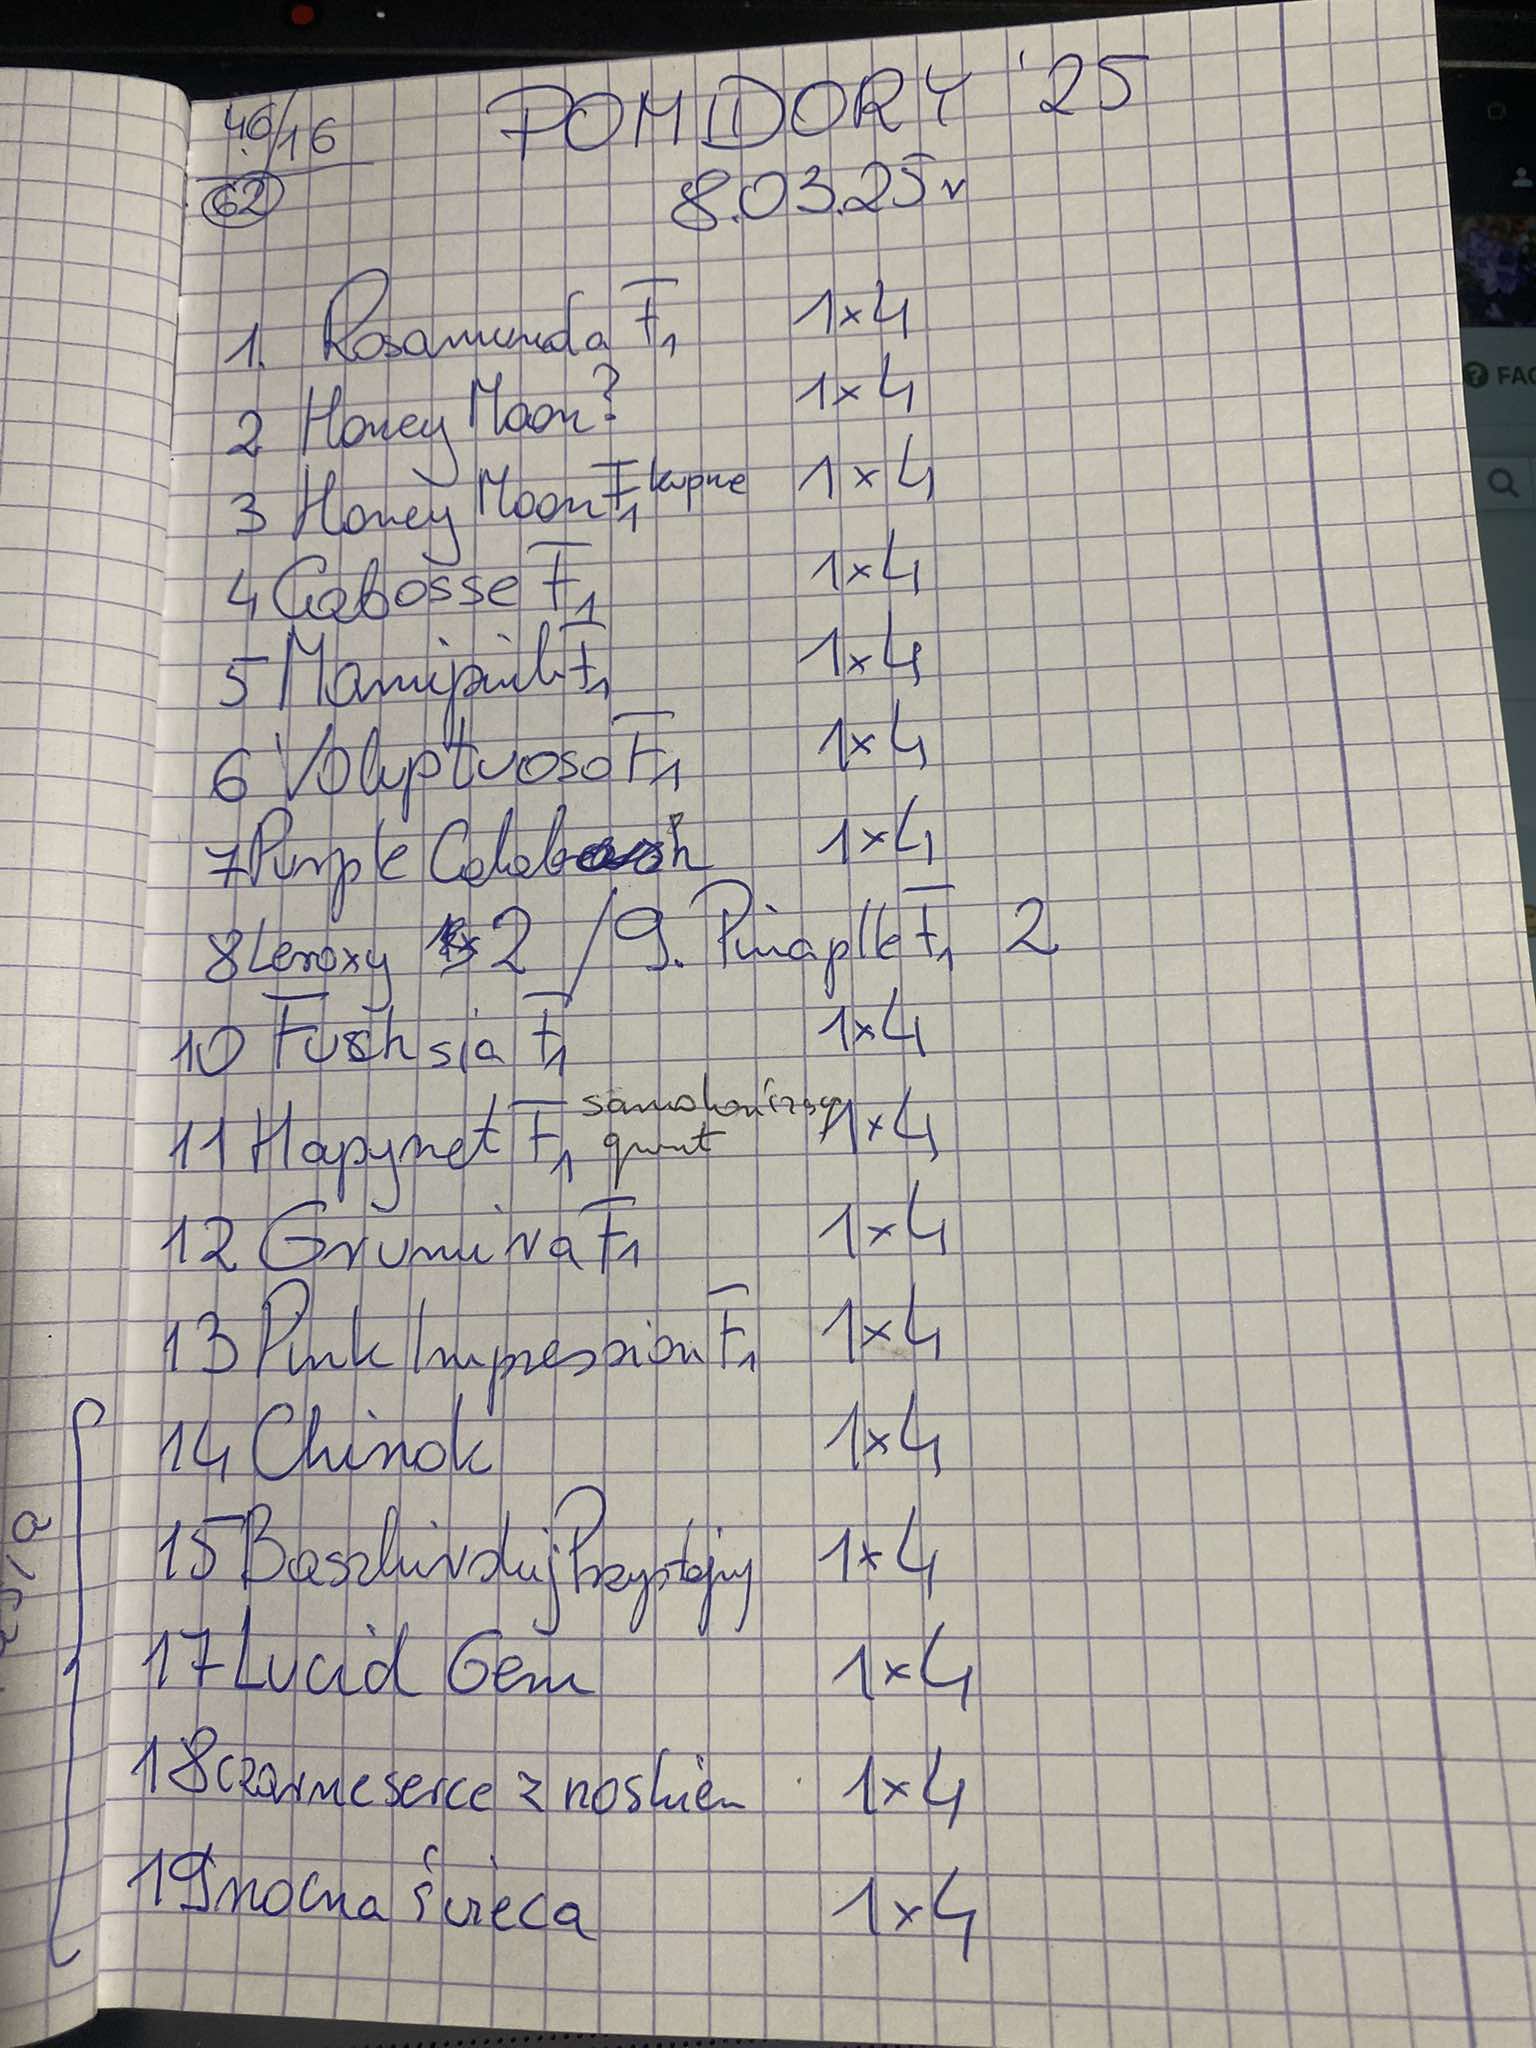 46/16
62
POMIDORY '25
8.03.25r
1. Rosamunda F1 1x4
2 Honey Moon? 1x4
3 Honey Moon F1 kupne 1x4
4 Cabosse F1 1x4
5 Manipul F1 1x4
6 Voluptuoso F1 1x4
7 Purple Calabash 1x4
8 Leroxy 2 / 9. Pinaplle F1 2
10 Fuchsia F1 1x4
11 Hapynet F1 samokończący 1x4
12 Grunira F1 1x4
13 Pink Impression F1 1x4
14 Chinok 1x4
15 Baszkirskij Przystojny 1x4
17 Lucid Gem 1x4
18 czarne serce z noskiem 1x4
19 nocna świeca 1x4
FAQ